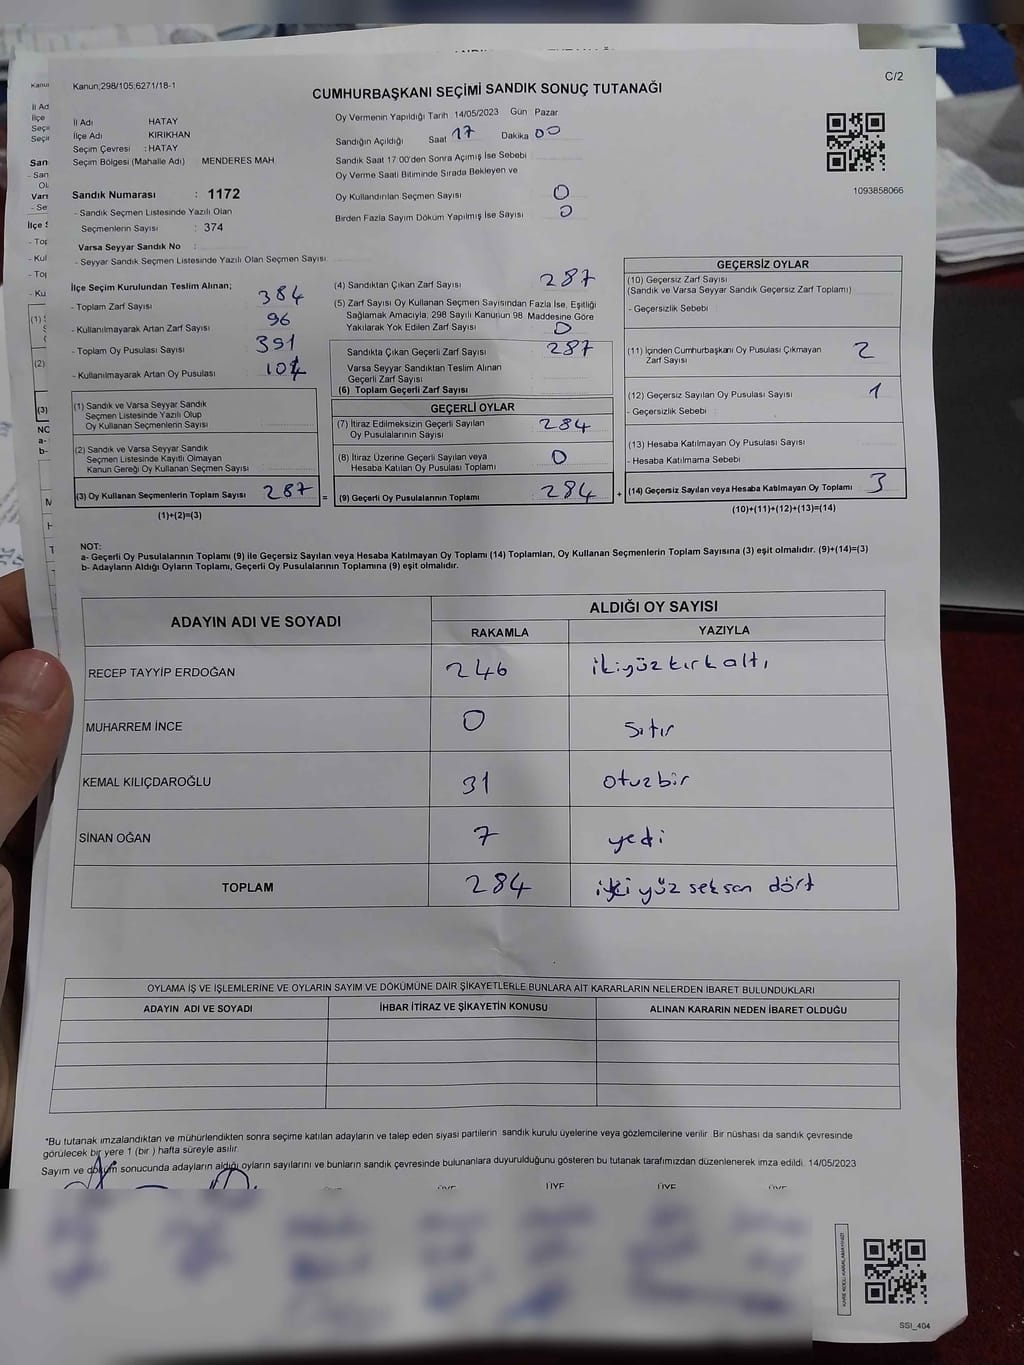 Kanun;298/105;6271/18-1
C/2
CUMHURBAŞKANI SEÇİMİ SANDIK SONUÇ TUTANAĞI
İl Adı HATAY
İlçe Adı KIRIKHAN
Seçim Çevresi : HATAY
Seçim Bölgesi (Mahalle Adı) MENDERES MAH
Sandık Numarası : 1172
- Sandık Seçmen Listesinde Yazılı Olan
Seçmenlerin Sayısı : 374
Varsa Seyyar Sandık No :
- Seyyar Sandık Seçmen Listesinde Yazılı Olan Seçmen Sayısı
Oy Vermenin Yapıldığı Tarih 14/05/2023 Gün Pazar
Sandığın Açıldığı Saat 17 Dakika 00
Sandık Saat 17 00'den Sonra Açımış İse Sebebi
Oy Verme Saati Bitiminde Sırada Bekleyen ve
Oy Kullandırılan Seçmen Sayısı 0
Birden Fazla Sayım Döküm Yapılmış İse Sayısı 0
1093858066
İlçe Seçim Kurulundan Teslim Alınan;
- Toplam Zarf Sayısı 384
- Kullanılmayarak Artan Zarf Sayısı 96
- Toplam Oy Pusulası Sayısı 391
- Kullanılmayarak Artan Oy Pusulası 104
(1) Sandık ve Varsa Seyyar Sandık
Seçmen Listesinde Yazılı Olup
Oy Kullanan Seçmenlerin Sayısı
(2) Sandık ve Varsa Seyyar Sandık
Seçmen Listesinde Kayıtlı Olmayan
Kanun Gereği Oy Kullanan Seçmen Sayısı
(3) Oy Kullanan Seçmenlerin Toplam Sayısı 287 =
(1)+(2)=(3)
(4) Sandıktan Çıkan Zarf Sayısı 287
(5) Zarf Sayısı Oy Kullanan Seçmen Sayısından Fazla İse, Eşitliği
Sağlamak Amacıyla, 298 Sayılı Kanunun 98. Maddesine Göre
Yakılarak Yok Edilen Zarf Sayısı 0
Sandıkta Çıkan Geçerli Zarf Sayısı 287
Varsa Seyyar Sandıktan Teslim Alınan
Geçerli Zarf Sayısı
(6) Toplam Geçerli Zarf Sayısı
GEÇERLİ OYLAR
(7) İtiraz Edilmeksizin Geçerli Sayılan
Oy Pusulalarının Sayısı 284
(8) İtiraz Üzerine Geçerli Sayılan veya
Hesaba Katılan Oy Pusulası Toplamı 0
(9) Geçerli Oy Pusulalarının Toplamı 284 +
GEÇERSİZ OYLAR
(10) Geçersiz Zarf Sayısı
(Sandık ve Varsa Seyyar Sandık Geçersiz Zarf Toplamı)
- Geçersizlik Sebebi
(11) İçinden Cumhurbaşkanı Oy Pusulası Çıkmayan
Zarf Sayısı 2
(12) Geçersiz Sayılan Oy Pusulası Sayısı 1
- Geçersizlik Sebebi
(13) Hesaba Katılmayan Oy Pusulası Sayısı
- Hesaba Katılmama Sebebi
(14) Geçersiz Sayılan veya Hesaba Katılmayan Oy Toplamı 3
(10)+(11)+(12)+(13)=(14)
NOT:
a- Geçerli Oy Pusulalarının Toplamı (9) ile Geçersiz Sayılan veya Hesaba Katılmayan Oy Toplamı (14) Toplamları, Oy Kullanan Seçmenlerin Toplam Sayısına (3) eşit olmalıdır. (9)+(14)=(3)
b- Adayların Aldığı Oyların Toplamı, Geçerli Oy Pusulalarının Toplamına (9) eşit olmalıdır.
ADAYIN ADI VE SOYADI
ALDIĞI OY SAYISI
RAKAMLA YAZIYLA
RECEP TAYYİP ERDOĞAN 246 ikiyüzkırkaltı
MUHARREM İNCE 0 Sıfır
KEMAL KILIÇDAROĞLU 31 otuzbir
SİNAN OĞAN 7 yedi
TOPLAM 284 iki yüz seksen dört
OYLAMA İŞ VE İŞLEMLERİNE VE OYLARIN SAYIM VE DÖKÜMÜNE DAİR ŞİKAYETLERLE BUNLARA AİT KARARLARIN NELERDEN İBARET BULUNDUKLARI
ADAYIN ADI VE SOYADI İHBAR İTİRAZ VE ŞİKAYETİN KONUSU ALINAN KARARIN NEDEN İBARET OLDUĞU
*Bu tutanak imzalandıktan ve mühürlendikten sonra seçime katılan adayların ve talep eden siyasi partilerin sandık kurulu üyelerine veya gözlemcilerine verilir. Bir nüshası da sandık çevresinde
görülecek bir yere 1 (bir ) hafta süreyle asılır.
Sayım ve döküm sonucunda adayların aldığı oyların sayılarını ve bunların sandık çevresinde bulunanlara duyurulduğunu gösteren bu tutanak tarafımızdan düzenlenerek imza edildi. 14/05/2023
ÜYE ÜYE ÜYE ÜYE ÜYE
SSİ_404